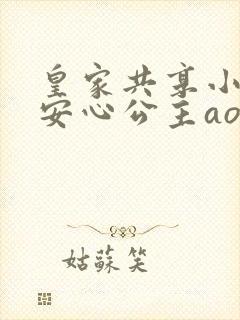 皇家共享小
安心公主ao
姑蘇笑